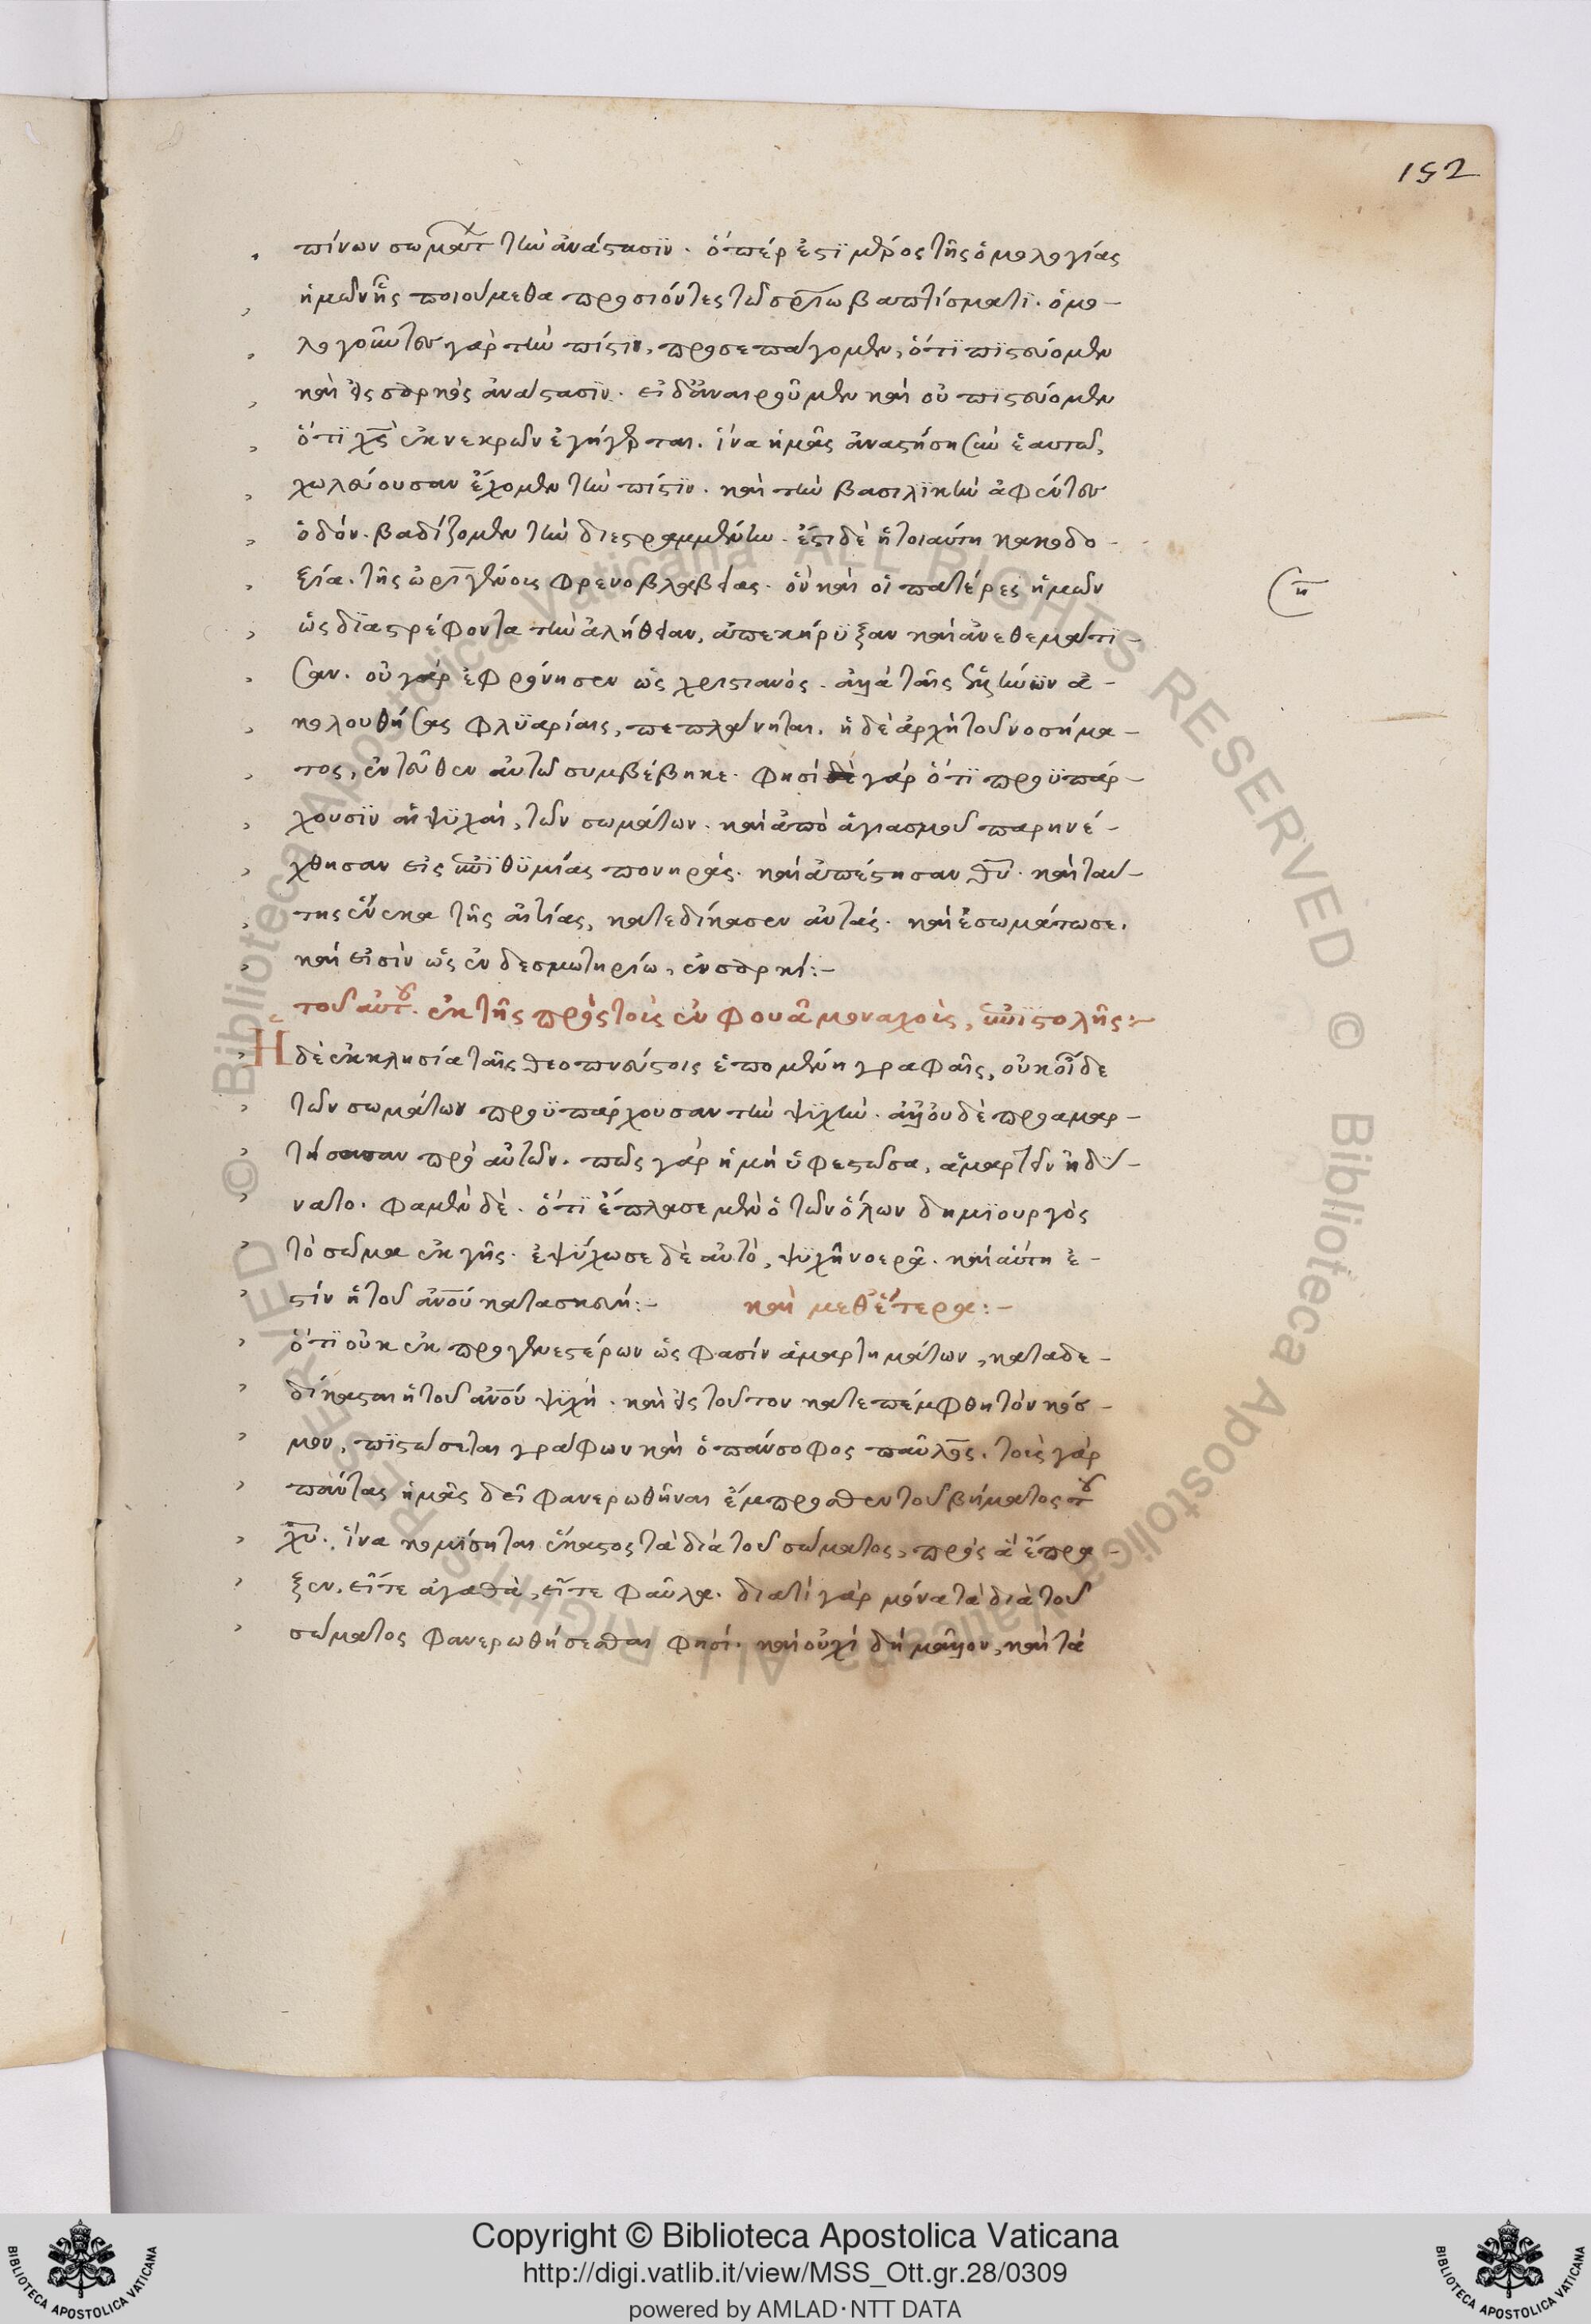 152
πίνων σωμάτ τὴν ἀνάστασϊν. ὅπέρ ἐστϊ μέρος τῆς ὁμολογίας
ἡμῶν ἧς ποιούμεθα προσιόντες τῶ σρίω βαπτίσματι. ὁμο-
λογοῦντες γὰρ τὴν πίστιν, προσεπάγομεν, ὅτϊ πϊστεύομεν
καὶ εἰς σαρκὸς ἀνάστασϊν. εἰ δἀναιροῦμεν καὶ οὐ πϊστεύομεν
ὅτϊ χς ἐκ νεκρῶν ἐγήγερται. ἵνα ἡμᾶς ἀναστήση σὺν ἑαυτῶ,
χωλεύουσαν ἔχομεν τὴν πίστϊν. καὶ τὴν βασιλϊκὴν ἀφέντες
ὁδόν. βαδίζομεν τὴν διεστραμμένην. ἔστι δὲ ἡ τοιαύτη κακοδο-
ξία. τῆς ὠριγένους φρενοβλαβείας. ὃν καὶ οἱ πατέρες ἡμῶν
ὡς δϊαστρέφοντα τὴν ἀλήθειαν, ἀπεκήρϋξαν καὶ ἀνεθεμάτϊ-
σαν. οὐ γὰρ ἐφρόνησεν ὡς χριστιανός. ἀλλὰ ταῖς ἑλλήνων ἀ-
κολουθήσας φλϋαρίαις, πεπλάνηται. ἡ δὲ ἀρχὴ τοῦ νοσήμα-
τος, ἐντεῦθεν αὐτῶ συμβέβηκε. φησί γὰρ ὅτϊ προϋπάρ-
χουσϊν αἱ ψϋχαὶ, τῶν σωμάτων. καὶ ἀπὸ ἁγιασμοῦ παρηνέ-
χθησαν εἰς ἐπϊθϋμίας πονηράς. καὶ ἀπέστησαν θυ. καὶ ταύ-
της ἕνεκα τῆς αἰτίας, κατεδίκασεν αὐτάς. καὶ ἐσωμάτωσε.
καί εἰσὶν ὡς ἐν δεσμωτηρίω, ἐν σαρκί:-
τοῦ αὐτοῦ. ἐκ τῆς πρὸς τοὺς ἐν φουᾶ μοναχοὺς, ἐπϊστολῆς:-
Ἡ δὲ ἐκκλησία ταῖς θεοπνεύστοις ἑπομένη γραφαῖς, οὐκ οἶδε
τῶν σωμάτων προϋπάρχουσαν τὴν ψϋχὴν. ἀλλ' οὐδὲ προαμαρ-
τήσασαν πρὸ αὐτῶν. πῶς γὰρ ἡ μὴ ὑφεστῶσα, ἁμαρτεῖν ἠδϋ-
νατο. φαμὲν δὲ. ὅτϊ ἔπλασε μὲν ὁ τῶν ὅλων δημϊουργὸς
τὸ σῶμα ἐκ γῆς. ἐψϋχωσε δὲ αὐτὸ, ψϋχῇ νοερᾷ. καὶ αὕτη ἐ-
στίν ἡ τοῦ ἀνου κατασκευή:- καὶ μεθ' ἕτερα:-
ὅτϊ οὐκ ἐκ προγενεστέρων ὥς φασίν ἁμαρτημάτων, καταδε-
δίκασται ἡ τοῦ ἀνου ψϋχὴ. καὶ εἰς τοῦτον κατεπέμφθη τὸν κόσ-
μον, πϊστώσεται γράφων καὶ ὁ πάνσοφος παῦλος. τοὺς γὰρ
πάντας ἡμᾶς δεῖ φανερωθῆναι ἔμπροσθεν τοῦ βήματος τοῦ
χυ. ἵνα κομϊσηται ἕκαστος τὰ διὰ τοῦ σώματος, πρὸς ἃ ἔπρα-
ξεν. εἴτε ἀγαθὰ, εἴτε φαῦλα. διατί γὰρ μόνα τὰ διὰ τοῦ
σώματος φανερωθήσεσθαι φησί. καὶ οὐχί δὴ μᾶλλον, καὶ τὰ
Copyright © Biblioteca Apostolica Vaticana
http://digi.vatlib.it/view/MSS_Ott.gr.28/0309
powered by AMLAD·NTT DATA